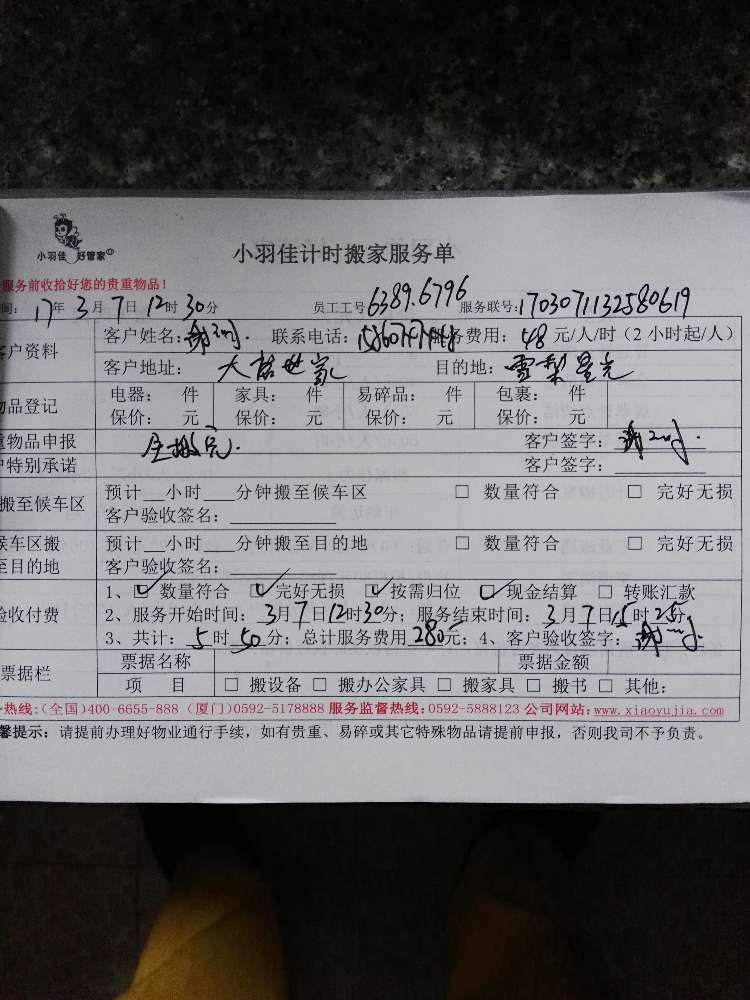 小羽佳 好管家
小羽佳计时搬家服务单
服务前收拾好您的贵重物品！
间: 17年 3月 7日 12时 30分 员工工号 6389.6796 服务联号: 1703071132580619
客户资料 客户姓名: 联系电话: 服务费用: 48 元/人/时（2 小时起/人）
客户地址: 世家 目的地: 雪梨星光
物品登记 电器: 件 家具: 件 易碎品: 件 包裹: 件
保价: 元 保价: 元 保价: 元 保价: 元
重物品申报 客户签字:
户特别承诺 客户签字:
搬至候车区 预计__小时___分钟搬至候车区 □ 数量符合 □ 完好无损
客户验收签名:
候车区搬至目的地 预计__小时___分钟搬至目的地 □ 数量符合 □ 完好无损
客户验收签名:
验收付费 1、☑ 数量符合 ☑ 完好无损 ☑ 按需归位 ☑ 现金结算 □ 转账汇款
2、服务开始时间: 3月7日12时30分; 服务结束时间: 3月7日15时25分
3、共计: 5时50分; 总计服务费用280元; 4、客户验收签字:
票据栏 票据名称 票据金额
项 目 □ 搬设备 □ 搬办公家具 □ 搬家具 □ 搬书 □ 其他:
热线:(全国)400-6655-888 (厦门)0592-5178888 服务监督热线:0592-5888123 公司网站:www.xiaoyujia.com
馨提示: 请提前办理好物业通行手续，如有贵重、易碎或其它特殊物品请提前申报，否则我司不予负责。